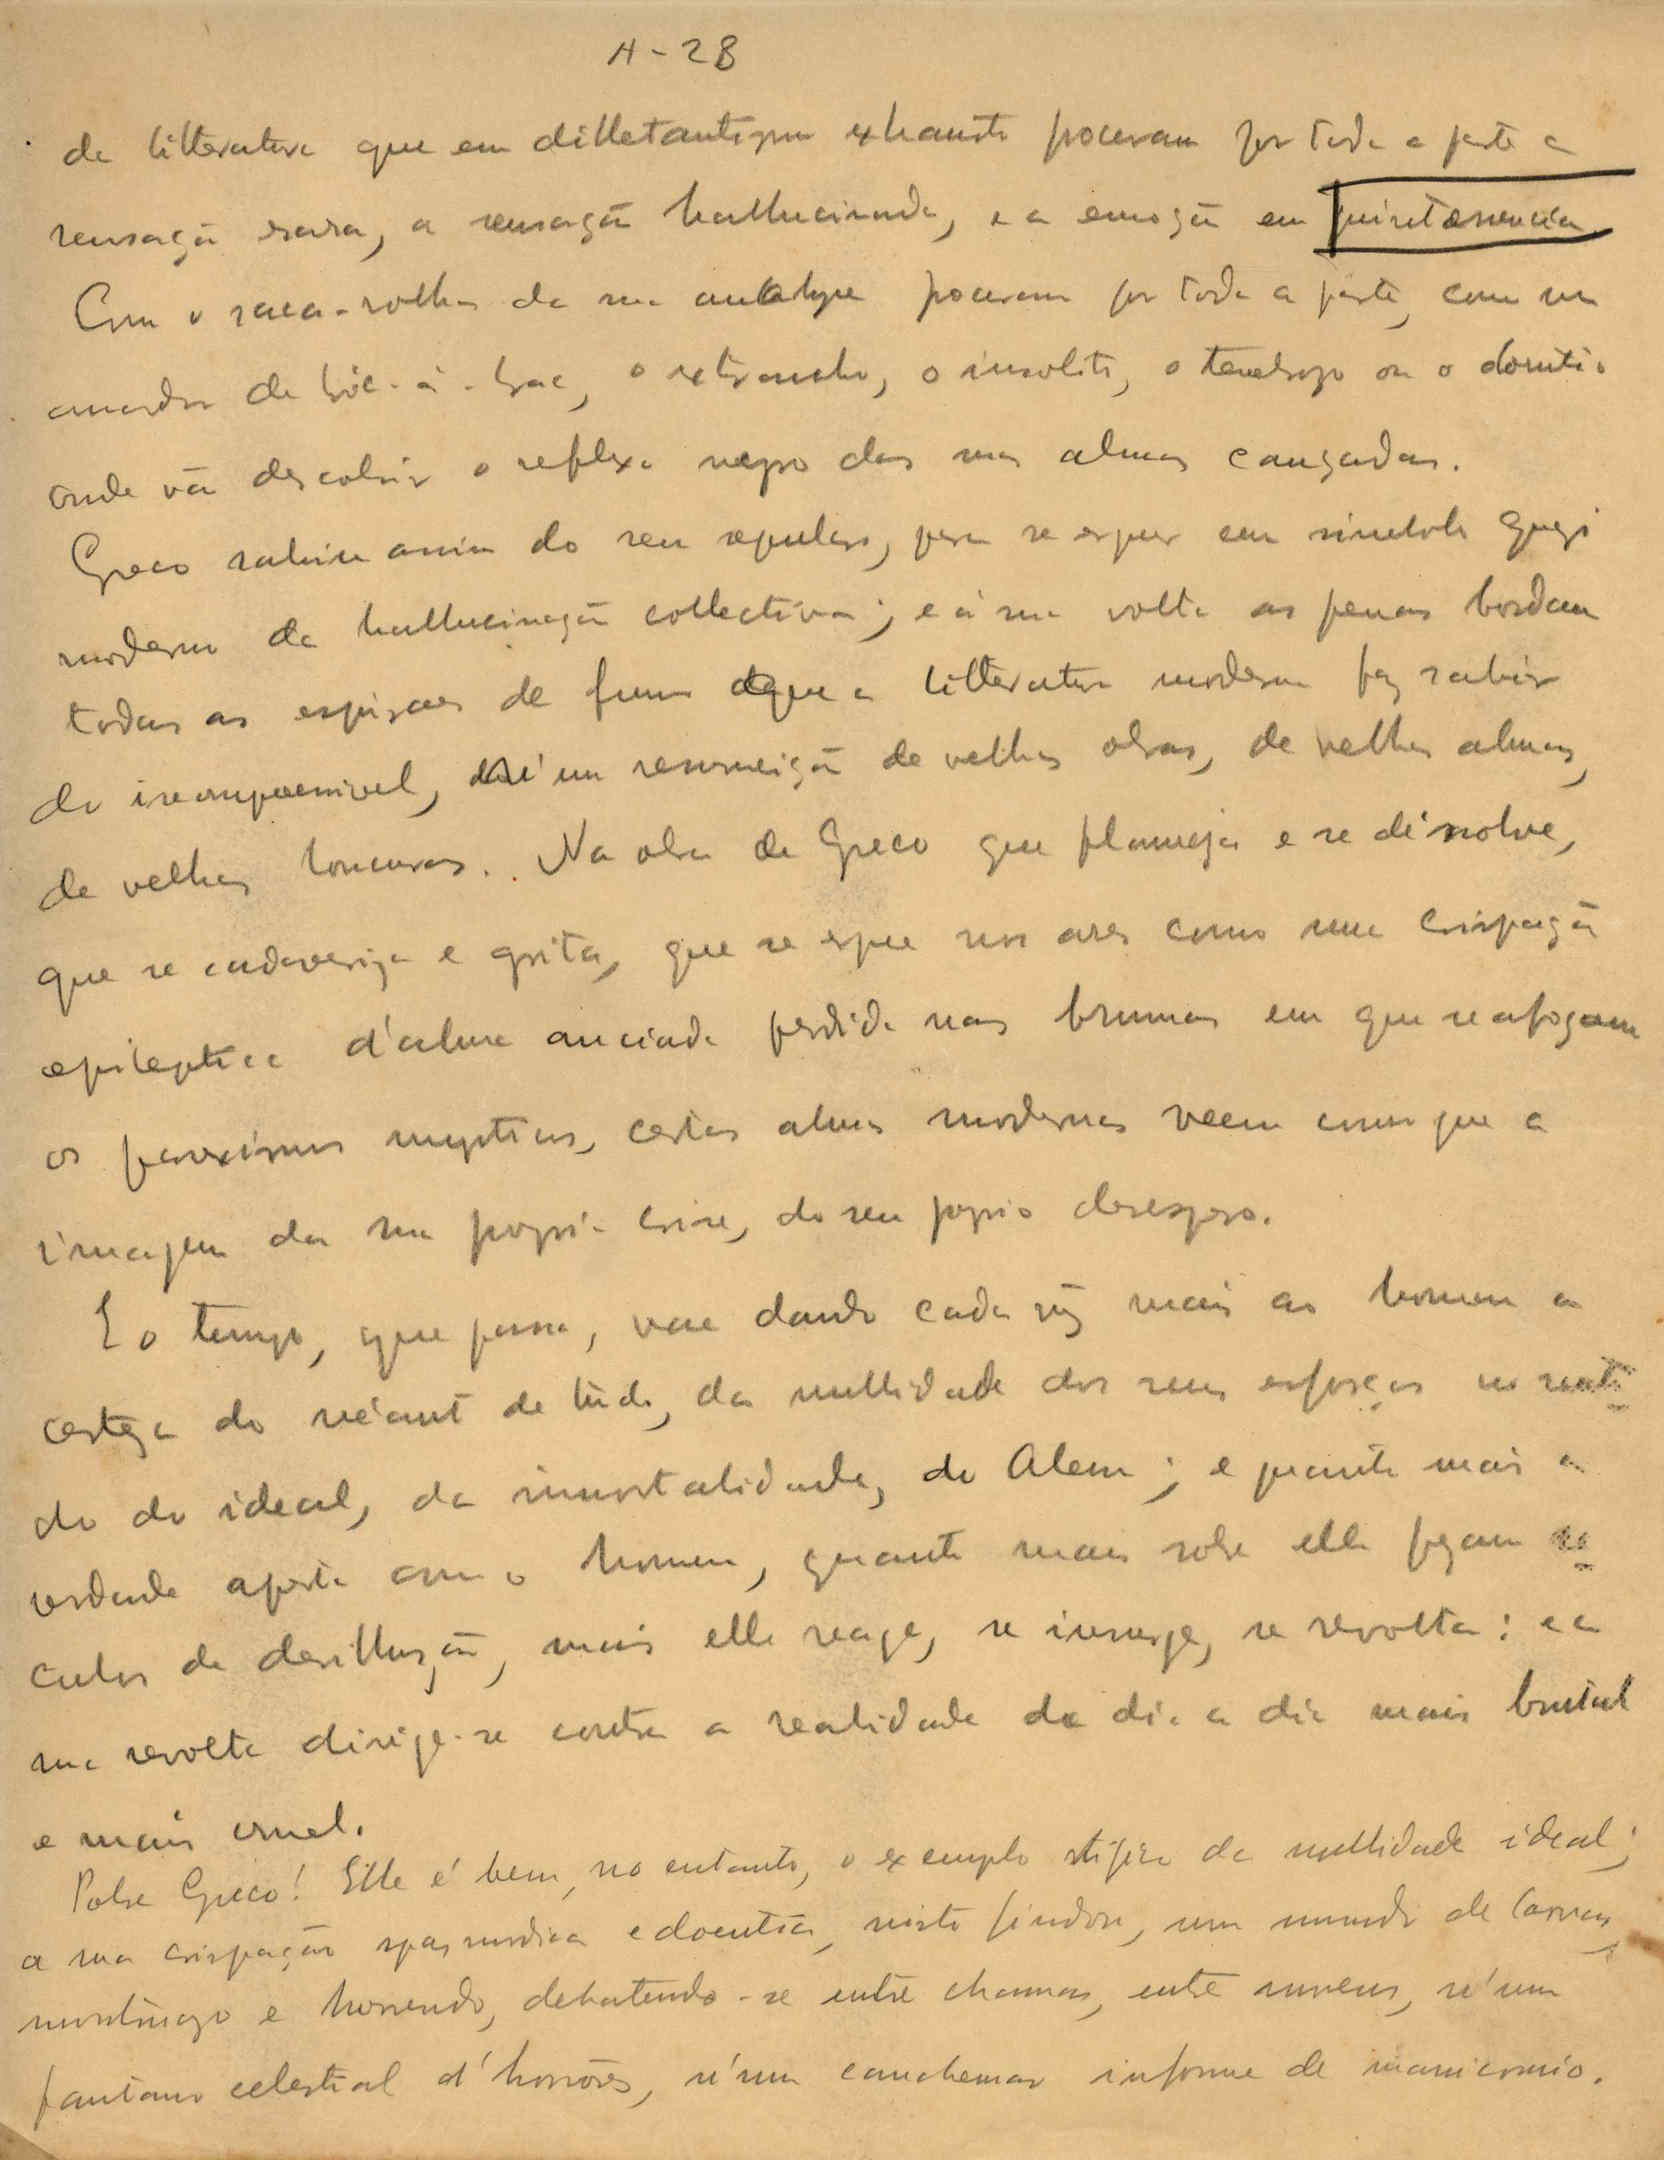 A-28
da litteratura que em dilletantismo exhausto procuram por toda a parte a
sensação rara, a sensação hallucinada, e a emoção em quintessencia
Com o saca-rolhas da sua analyse procuram por toda a parte, como um
amador de bric-à-brac, o extranho, o insolito, o tenebroso ou o
onde vão descobrir o reflexo negro das suas almas cançadas.
Greco sahiu assim do seu sepulcro, para se erguer em simbolo quasi
moderno da hallucinação collectiva; e á sua volta as penas bordam
todas as espiraes de fumo que a litteratura moderna faz subir
do incomprensivel, n'uma resurreição de velhas obras, de velhas almas,
de velhas loucuras. Na obra de Greco que flameja e se dissolve,
que se cadaveriza e grita, que se ergue nos ares como uma crispação
epileptica d'alma anciada perdida nas brumas em que se afogam
os paroxismos mysticos, certas almas modernas veem como que a
imagem da sua propria crise, do seu proprio desespero.
E o tempo, que passa, vae dando cada vez mais ao homem a
certeza do néant de tudo, da nullidade dos seus esforços no
do do ideal, da immortalidade, do Alem; e quanto mais a
verdade aperta com o homem, quanto mais sobre elle pezam
culos de desillusão, mais elle reage, se insurge, se revolta: e a
sua revolta dirige-se contra a realidade de dia a dia mais brutal
e mais cruel.
Pobre Greco! Elle é bem, no entanto, o exemplo da nullidade ideal;
a sua crispação spasmodica e doentia, um mundo de larvas,
e horrendo, debatendo-se entre chamas, entre nuvens, n'um
pantano celestial d'horrôres, n'um cauchemar informe de manicomio.